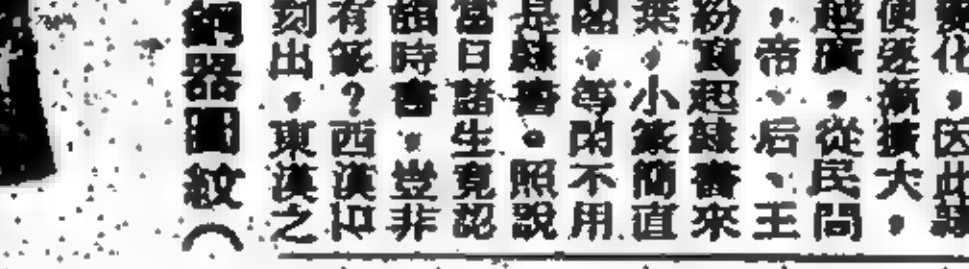 化，因此
便逐漸擴大，
越廣，從民間
，帝、后、王
紛寫起隸書來
葉，小篆簡直
，等閑不用
是隸書。照說
當日諸生竟認
時書，豈非
有篆？西漢
刻出，東漢之
銅器圖紋（